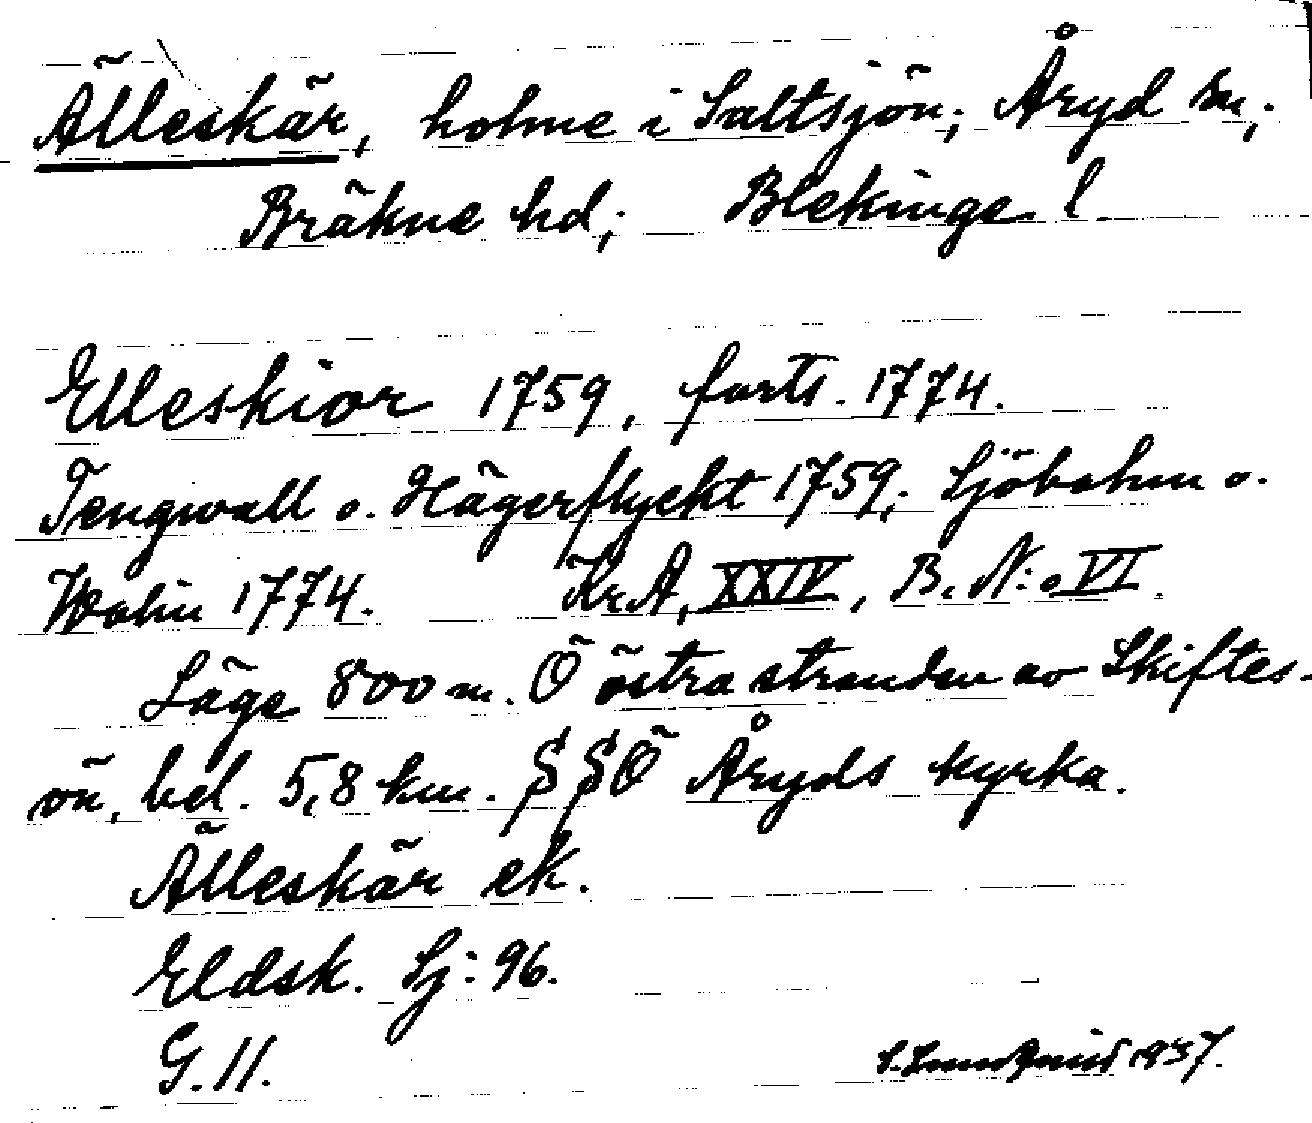 Älleskär, holme i Saltsjön; Åryd sn,;
Bräkne hd,; Blekinge l
Elleskiör 1759, forts. 1774.
Tengwall o. Hägerflyckt 1759,. Sjöbohm o.
Wahn 1774. Kr.A, XXIV, B. N:o VI.
Läge 800 m. Ö östra stranden av Skiftes-
ön, bel. 5,8 km. SSÖ Åryds kyrka.
Älleskär ek.
Eldsk. Sj: 96.
G. 11.
S. Lundquist 1937.